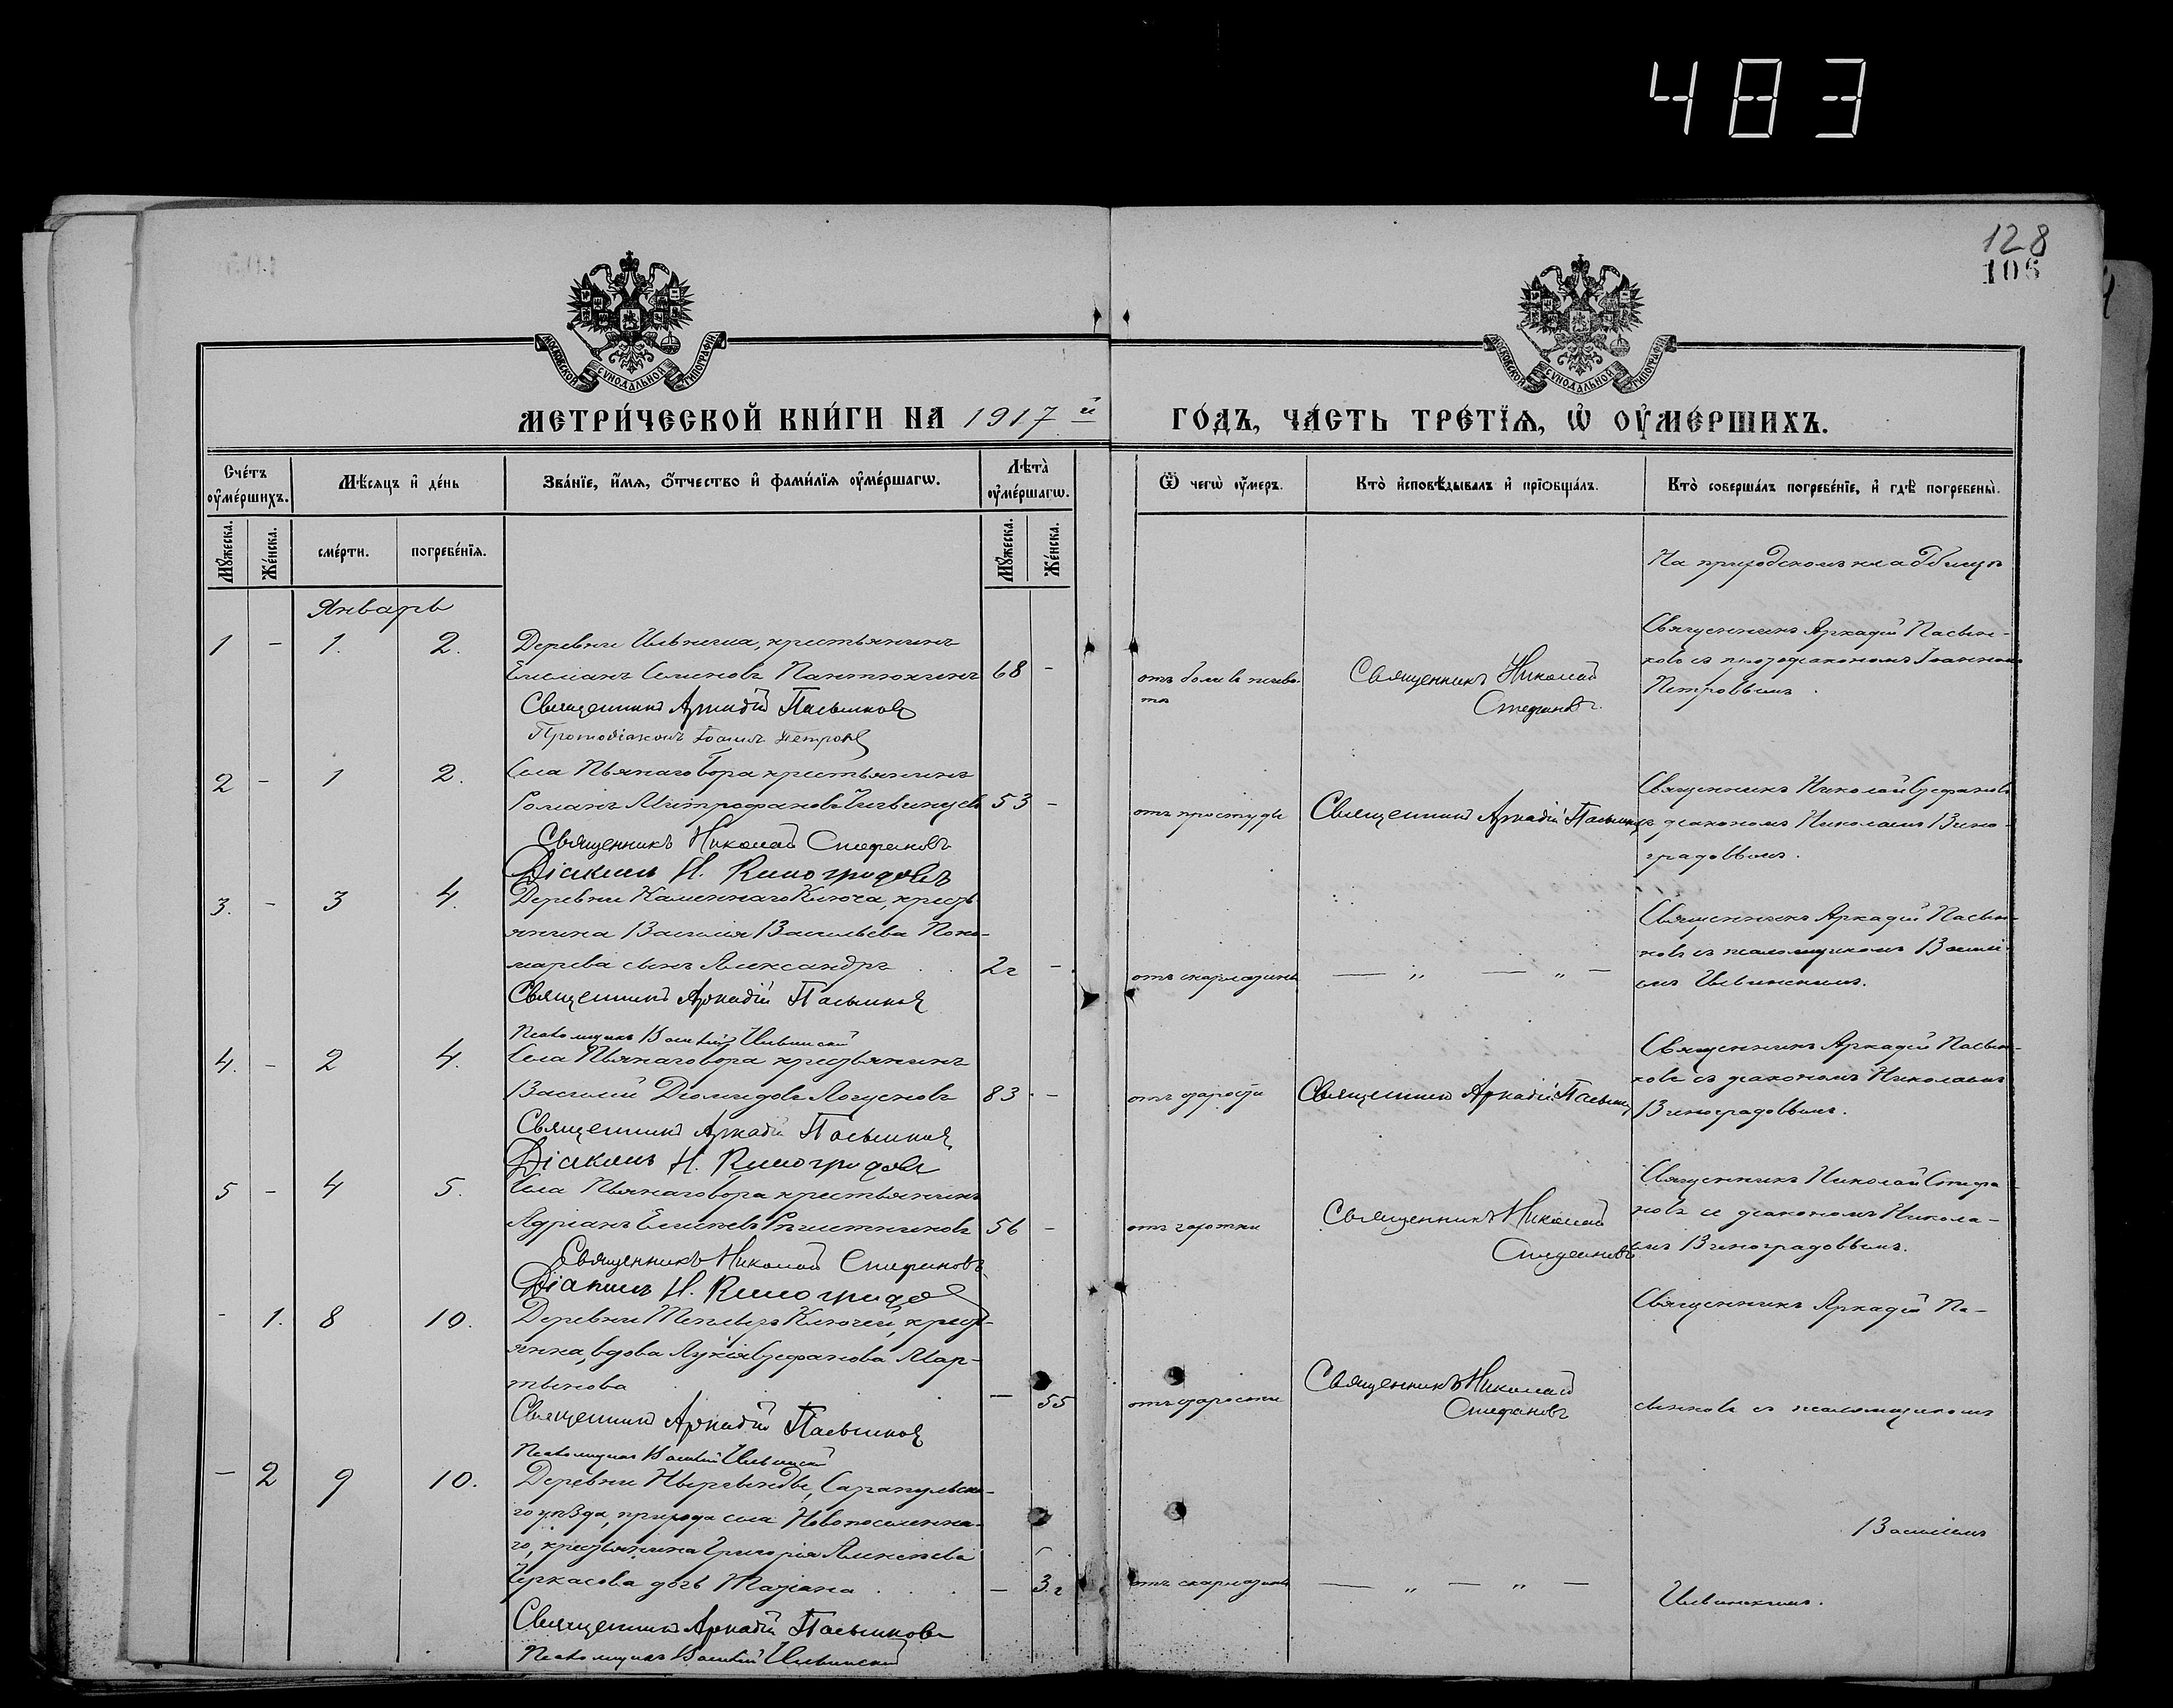 483
128
106
МОСКОВСКОЙ СѴНОДАЛЬНОЙ ТИПОГРАФІИ
МОСКОВСКОЙ СѴНОДАЛЬНОЙ ТИПОГРАФІИ
МЕТРИ́ЧЕСКОЙ КНИ́ГИ НА 1917 й
ГО́ДЪ, ЧА́СТЬ ТРЕ́ТЇѦ, Ѡ҆ ОУ҆МЕ́РШИХЪ.
Сче́тъ оу҆ме́ршихъ.
Мѣ́сѧцъ и҆ де́нь
Зва́нїе, и҆́мѧ, ѻ҆́тчество и҆ фами́лїѧ оу҆ме́ршагѡ.
Лѣ́та̀ оу҆ме́ршагѡ.
Ѿ чегѡ̀ оу҆́меръ.
Кто̀ и҆сповѣ́дывалъ и҆ прїѡбща́лъ.
Кто̀ соверша́лъ погребе́нїе, и҆ гдѣ̀ погребены̀.
Мꙋ́жеска.
Же́нска.
сме́рти.
погребе́нїѧ.
Мꙋ́жеска.
Же́нска.
На приходскомъ кладбищѣ
Январь
1 - 1. 2. Деревни Ильнеша, крестьянинъ
Емеліанъ Семеновъ Пантюхинъ 68 -
Священникъ Аркадій Пасынковъ
Протодіаконъ Іоаннъ Петровъ
отъ боли въ живо-
тѣ
Священникъ Николай
Стефановъ.
Священникъ Аркадій Пасын-
ковъ съ протодіакономъ Іоанномъ
Петровымъ.
2 - 1 2. Села Пьянаго Бора крестьянинъ
Романъ Митрофановъ 53 -
Священникъ Николай Стефановъ
Діаконъ Н. Виноградовъ
отъ простуды
Священникъ Аркадій Пасынковъ
Священникъ Николай Стефановъ
съ діакономъ Николаемъ Вино-
градовымъ.
3. - 3 4. Деревни Каменнаго Ключа, кресть-
янина Василія Васильева Поно-
марева сынъ Александръ 2г -
Священникъ Аркадій Пасынковъ
Псаломщикъ Василій Ильвинскій
отъ скарлатины
— „ — „ —
Священникъ Аркадій Пасын-
ковъ съ псаломщикомъ Василі-
емъ Ильвинскимъ.
4. - 2 4. Села Пьянаго Бора крестьянинъ
Василій Діомидовъ Логуновъ 83 -
Священникъ Аркадій Пасынковъ
Діаконъ Н. Виноградовъ
отъ старости
Священникъ Аркадій Пасынковъ
Священникъ Аркадій Пасын-
ковъ съ діакономъ Николаемъ
Виноградовымъ.
5 - 4 5. Села Пьянаго Бора крестьянинъ
Адріанъ 56 -
Священникъ Николай Стефановъ
Діаконъ Н. Виноградовъ
отъ чахотки
Священникъ Николай
Стефановъ
Священникъ Николай Стефа-
новъ съ діакономъ Никола-
емъ Виноградовымъ.
- 1. 8 10. Деревни Теплыхъ Ключей, кресть-
янка, вдова Лукія Стефанова Мар-
тынова — 55
Священникъ Аркадій Пасынковъ
Псаломщикъ Василій Ильвинскій
отъ старости
Священникъ Николай
Стефановъ
Священникъ Аркадій Па-
сынковъ съ псаломщикомъ
- 2 9 10. Деревни Ныргынды, Сарапульска-
го уѣзда, прихода села Новопоселенна-
го, крестьянина Григорія Алексѣева
Черкасова дочь Татіана — 3г
Священникъ Аркадій Пасынковъ
Псаломщикъ Василій Ильвинскій
отъ скарлатины
— „ — „ —
Василіемъ
Ильвинскимъ.